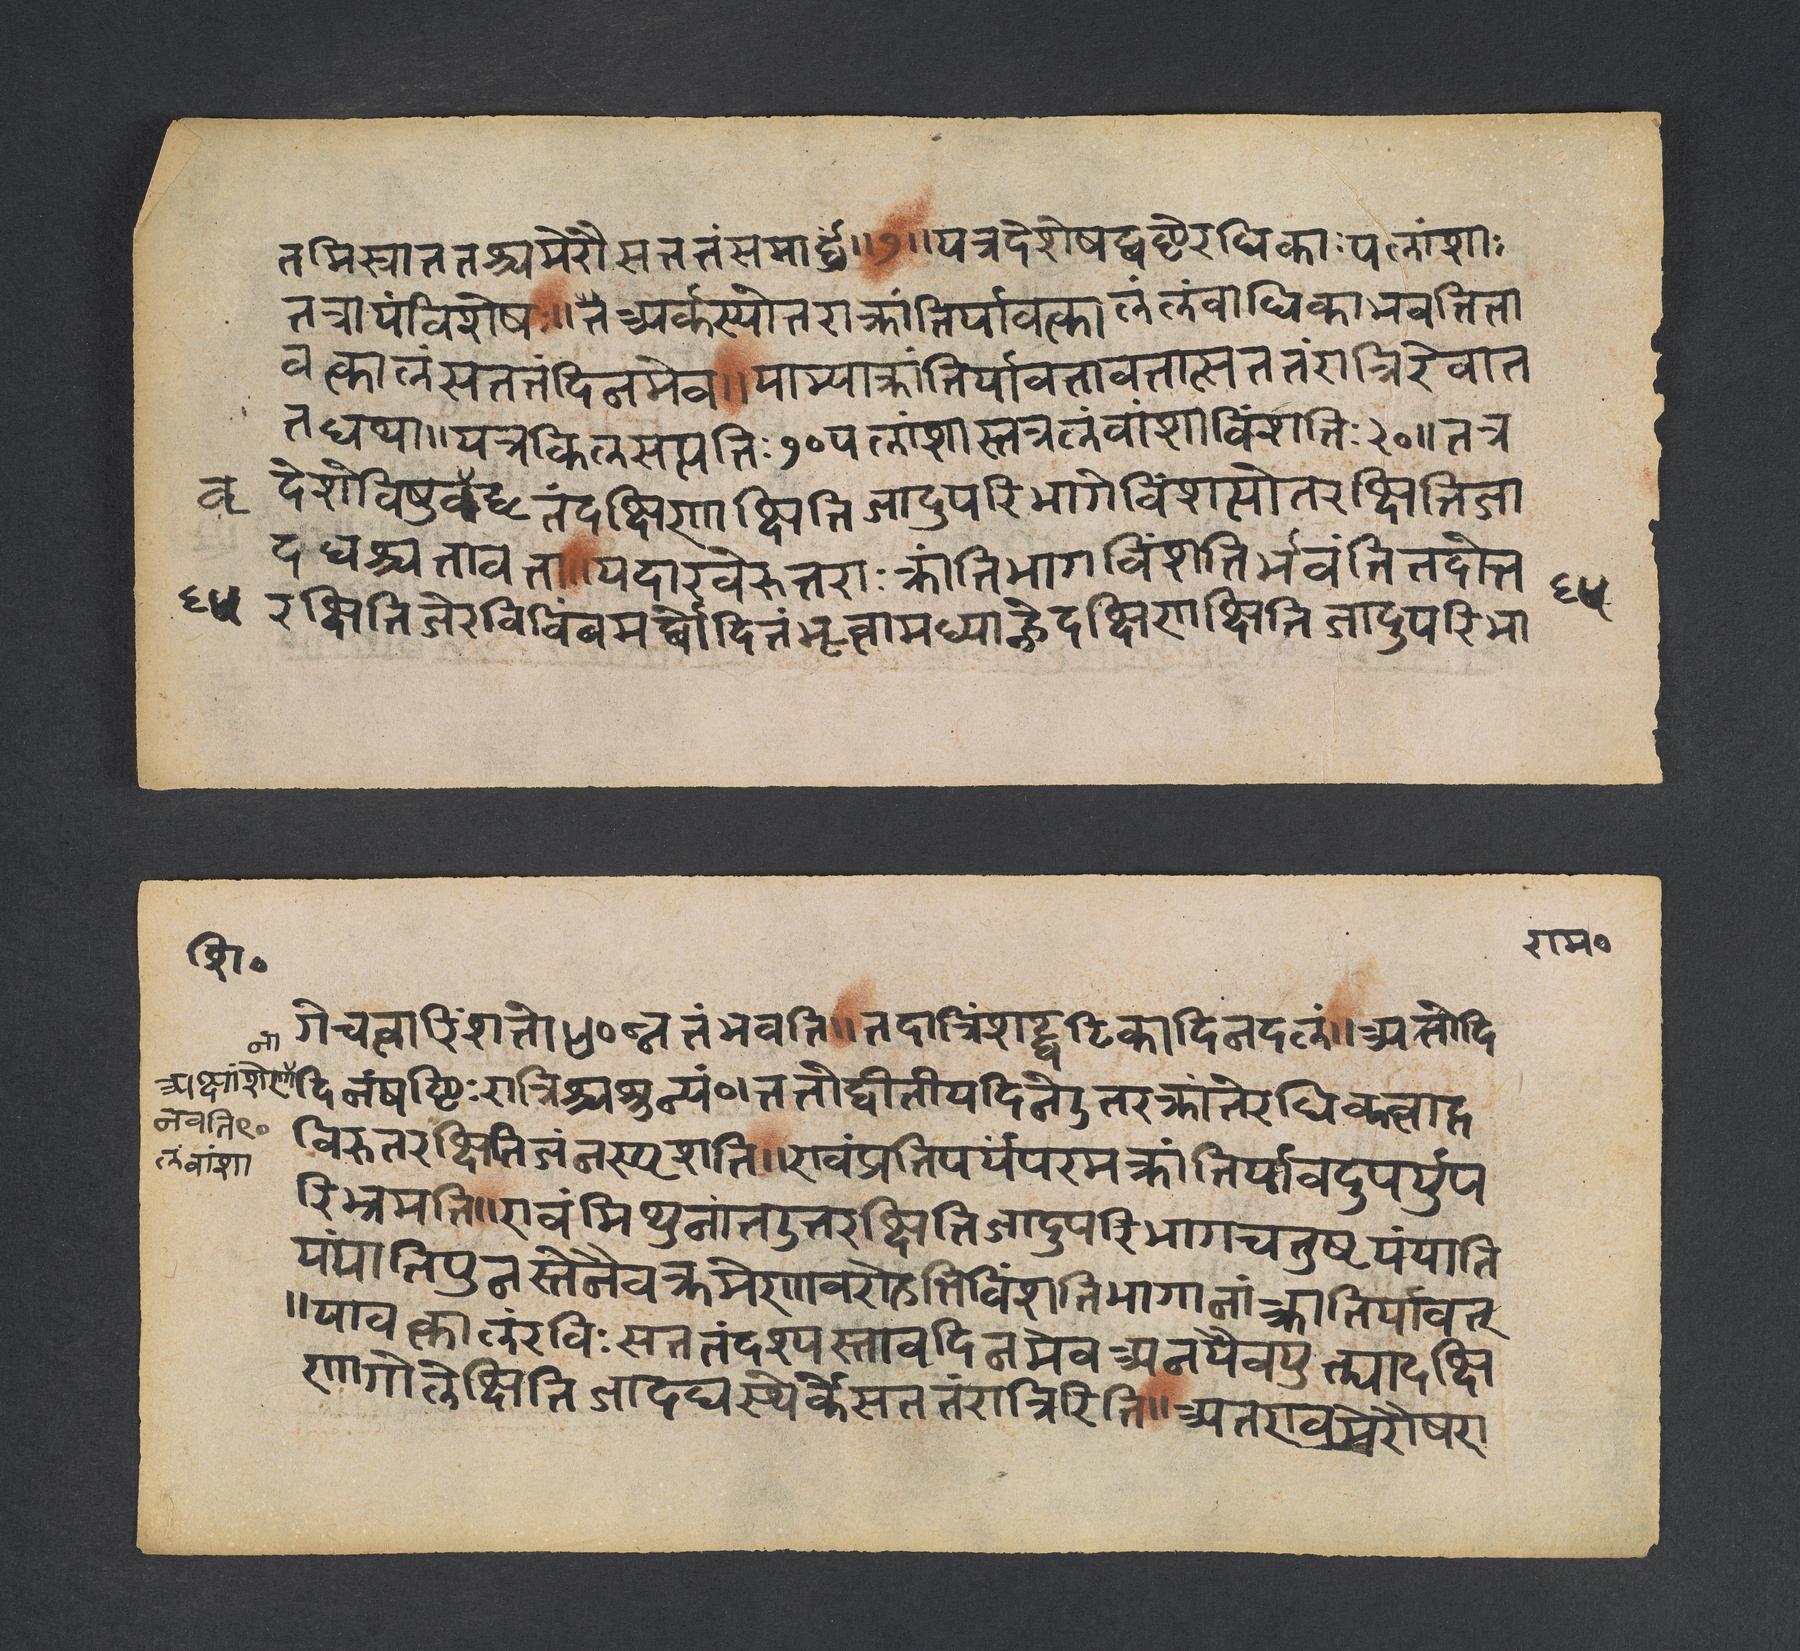 तमिस्रा ततश्च मेरौ सततं समार्द्धं ॥७॥ यत्र देशे षट्षष्टेरधिकाः पलांशाः
तत्रायं विशेषः ॥ तै अर्कस्योत्तराक्रांतिर्यावत्कालं लंबाधिका भवति ता
वत्कालं सततं दिनमेव ॥ याम्याक्रांतिर्यावत्तावत्तात्सततं रात्रिरेवात
तद्यथा ॥ यत्र किल सप्ततिः ७० पलांशास्तत्र लंबांशा विंशतिः २० ॥ तत्र
देशे विषुवद्वृत्तं दक्षिणक्षितिजादुपरिभागे विंशत्योतरक्षितिजा
वृ
दधश्च तावता ॥ यदा रवेरुत्तराः क्रांतिभाग विंशतिर्भवंति तदोत्त
रक्षितिजे रविबिंबमर्धोदितं भूत्वा मध्याह्ने दक्षिणक्षितिजादुपरिभा
६५
६५
शि॰
राम॰
गे चत्वारिंशतो ४० न्नतं भवति ॥ तदा त्रिंशद्घटिका दिनदलं ॥ अतो दि
ना
दिनं षष्टिः रात्रिश्च शून्यं ० । ततो द्वीतीयदिने उत्तरक्रांतेरधिकत्वाद्र
अक्षांशोणा
नवति ९०
लंबांशा
विरुत्तरक्षितिजं न स्पृशति ॥ एवं प्रतिपर्ययं परमक्रांतिर्यावदुपर्युप
रि भ्रमति ॥ एवं मिथुनांत उत्तरक्षितिजादुपरि भागचतुष्टयं याति
यं याति पुनस्तेनैव क्रमेणावरोहति विंशतिभागानां क्रांतिर्यावत्
॥ यावत्कालं रविः सततं दृश्यस्तावद्दिनमेव अनयैव युक्त्या दक्षि
णगोले क्षितिजादधस्थेर्के सततं रात्रिरिति ॥ अत एव मेरौ षण्मा